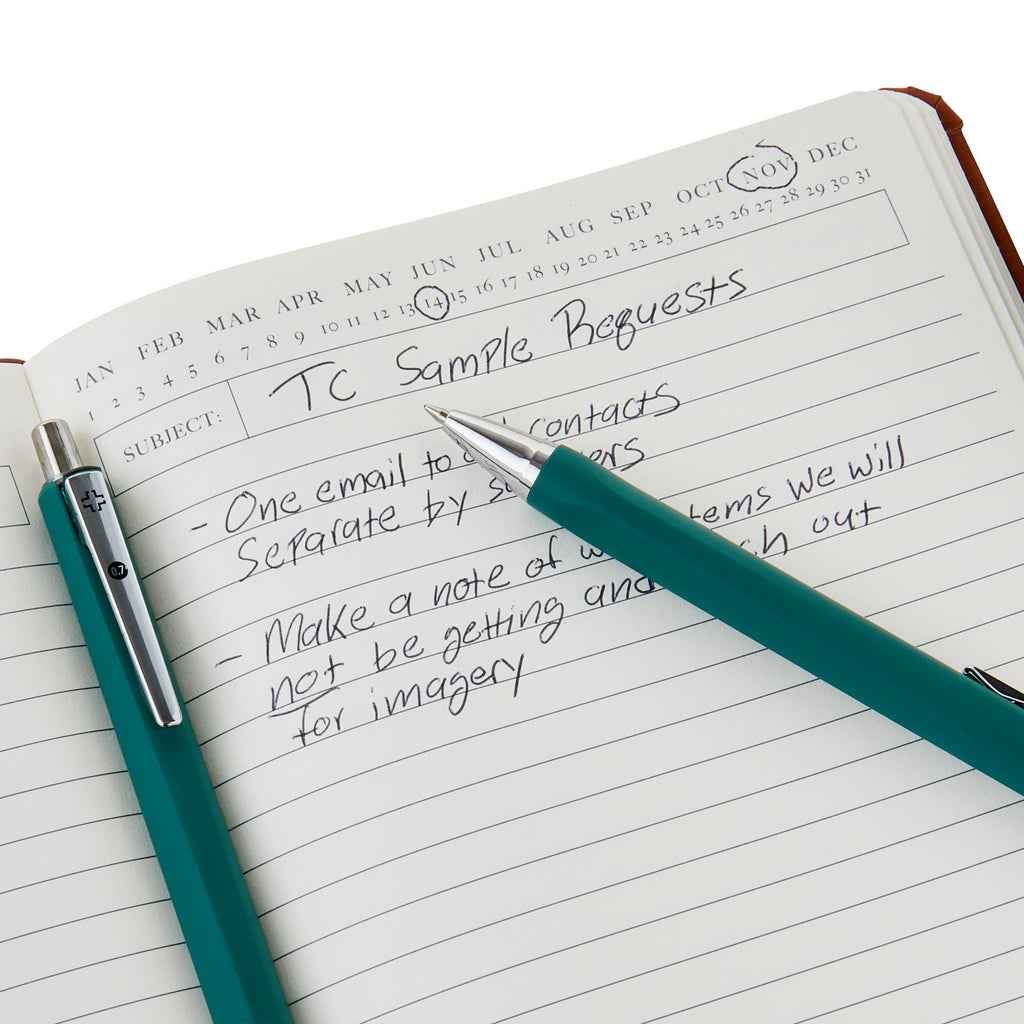 JAN FEB MAR APR MAY JUN JUL AUG SEP OCT NOV DEC
1 2 3 4 5 6 7 8 9 10 11 12 13 14 15 16 17 18 19 20 21 22 23 24 25 26 27 28 29 30 31
SUBJECT: TC Sample Requests
- One email to contacts
Separate by
- Make a note of we will
not be getting and out
for imagery
0.7